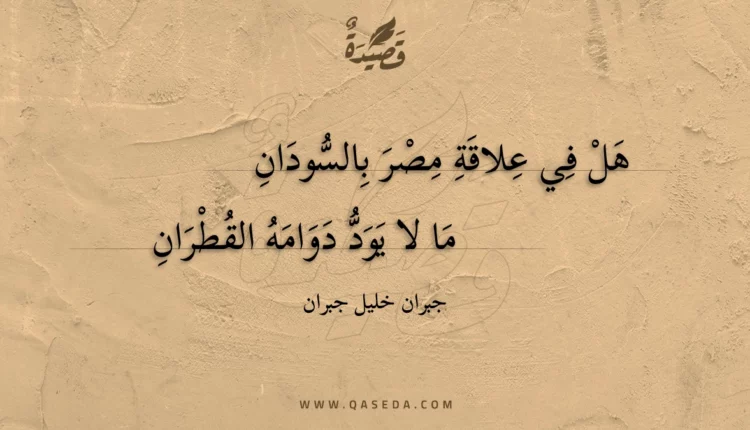 قَصِيْدَةٌ
هَلْ فِي عِلاقَةِ مِصْرَ بِالسُّودَانِ
مَا لا يَوَدُّ دَوَامَهُ القُطْرَانِ
جبران خليل جبران
WWW.QASEDA.COM